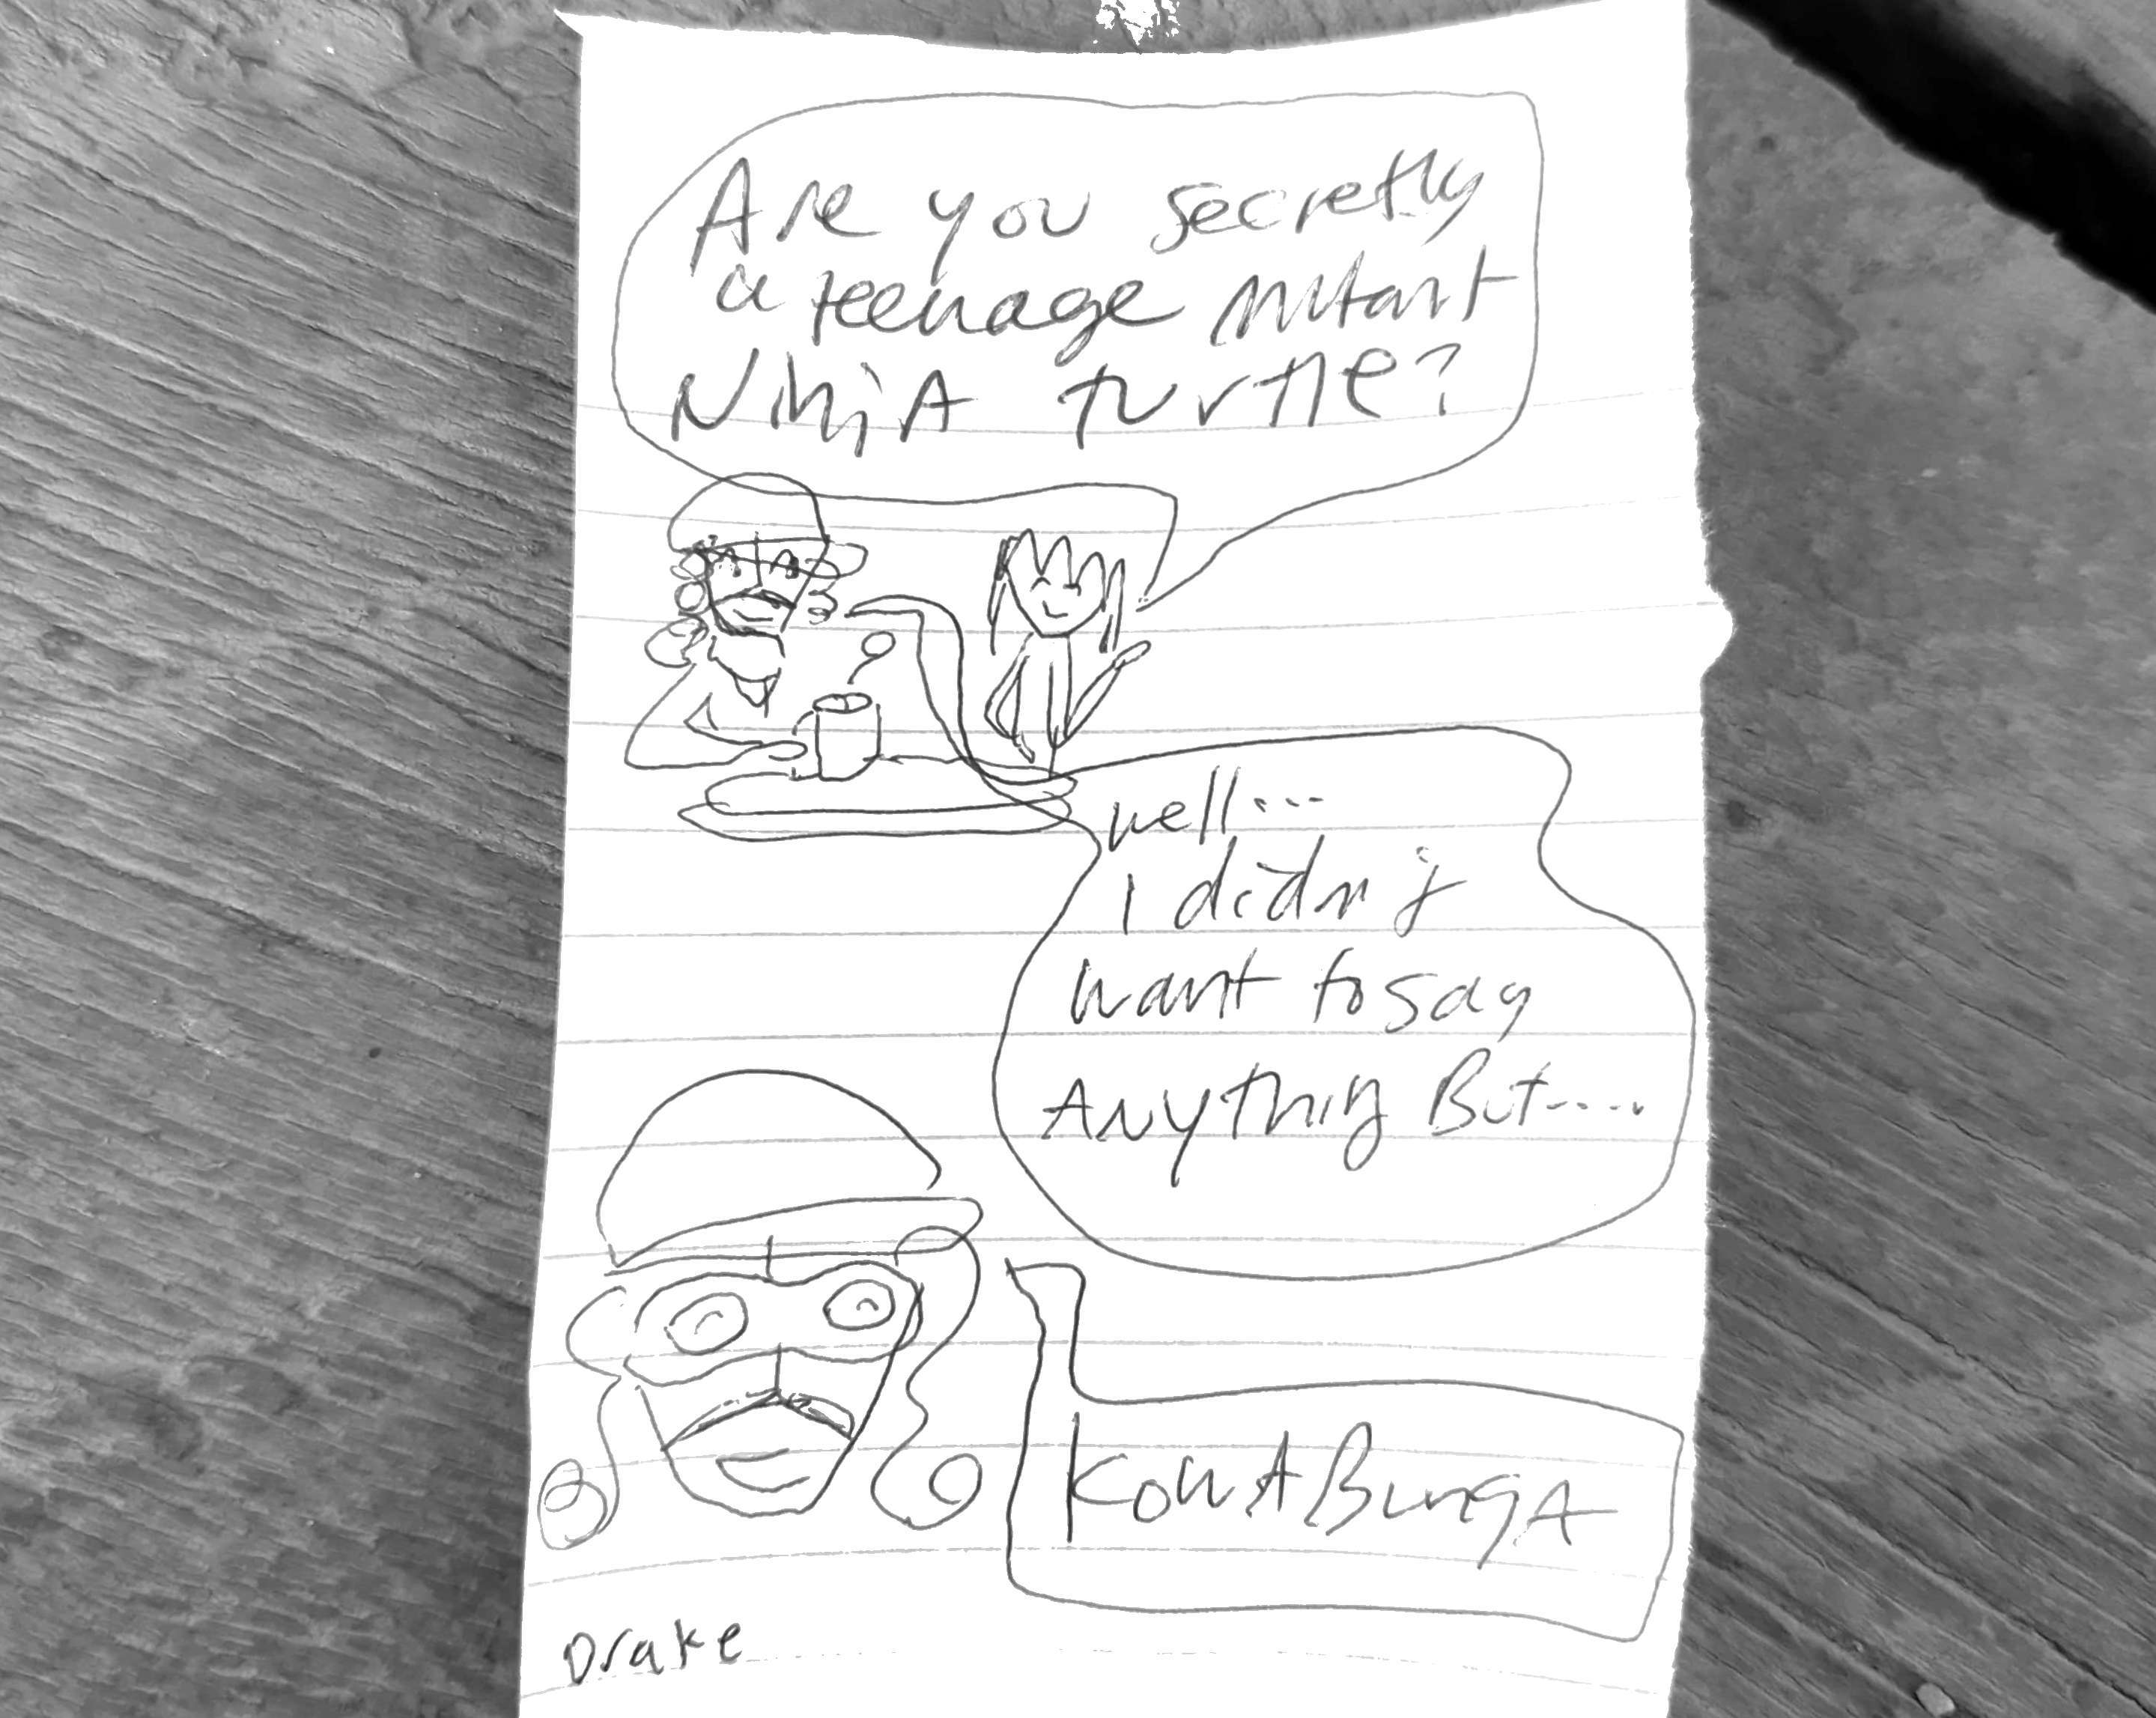 Are you secretly
a teenage mutant
NinjA turtle?
well...
I didn't
want to say
ANything But.....
KowABungA
Drake